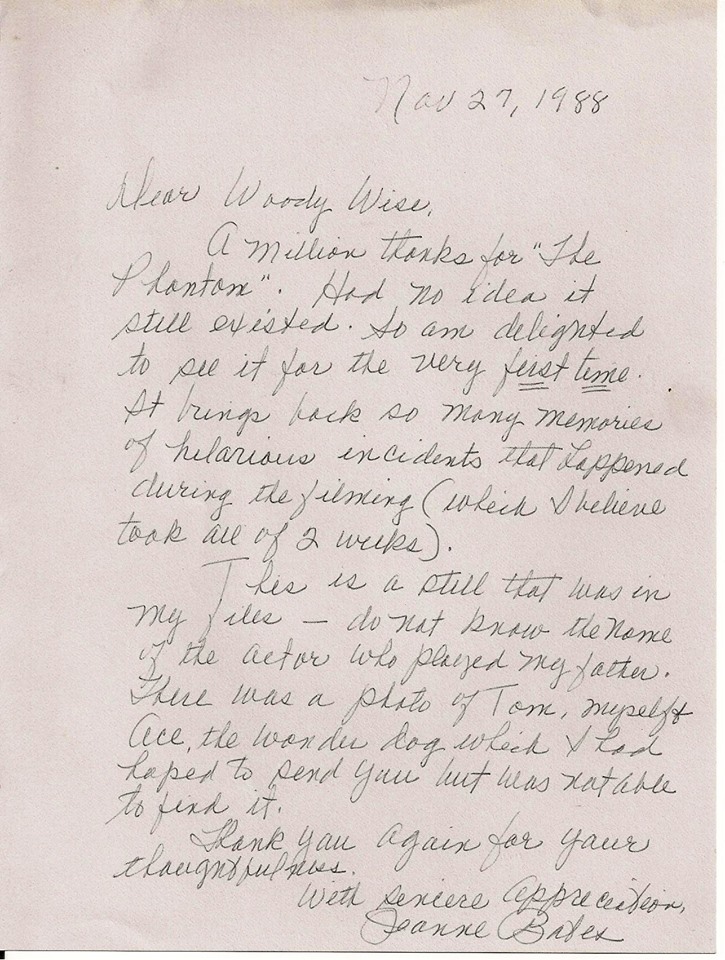 Nov 27, 1988
Dear Woody Wise,
A million thanks for "The
Phantom". Had no idea it
still existed. So am delighted
to see it for the very first time.
It brings back so many memories
of hilarious incidents that happened
during the filming (which I believe
took all of 2 weeks).
This is a still that was in
my files — do not know the name
of the actor who played my father.
There was a photo of Tom, myself &
Ace, the wonder dog which I had
hoped to send you but was not able
to find it.
Thank you again for your
thoughtfulness.
With sincere appreciation,
Jeanne Bates